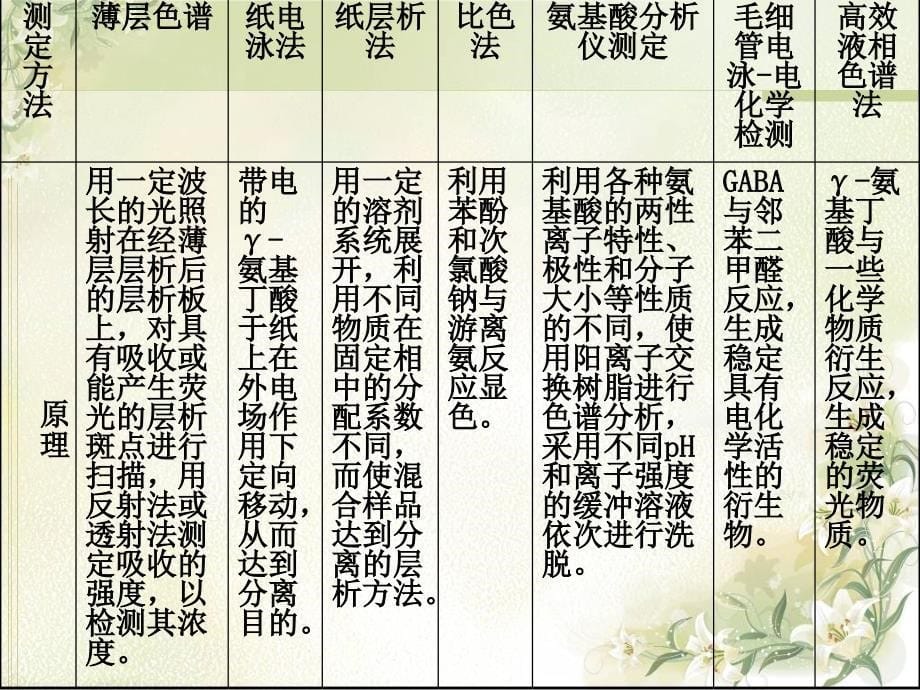 测
定
方
法
薄层色谱
纸电
泳法
纸层
析法
比色
法
氨基酸分析
仪测定
毛细
管电
泳-电
化学
检测
高效
液相
色谱
法
原
理
用一定波
长的光照
射在经薄
层层析后
的层析板
上，对具
有吸收或
能产生荧
光的层析
斑点进行
扫描，用
反射法或
透射法测
定吸收的
强度，以
检测其浓
度。
带电
的
γ-
氨基
丁酸
于纸
上在
外电
场作
用下
定向
移动，
从而
达到
分离
目的。
用一定
的溶剂
系统展
开，利
用不同
物质在
固定相
中的分
配系数
不同，
而使混
合样品
达到分
离的层
析方法。
利用
苯酚
和次
氯酸
钠与
游离
氨反
应显
色。
利用各种氨
基酸的两性
离子特性、
极性和分子
大小等性质
的不同，使
用阳离子交
换树脂进行
色谱分析，
采用不同pH
和离子强度
的缓冲溶液
依次进行洗
脱。
GABA
与邻
苯二
甲醛
反应，
生成
稳定
具有
电化
学活
性的
衍生
物。
γ-氨
基丁
酸与
一些
化学
物质
衍生
反应，
生成
稳定
的荧
光物
质。